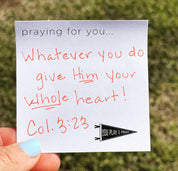 praying for you...
Whatever you do
give Him your
whole heart!
Col. 3:23